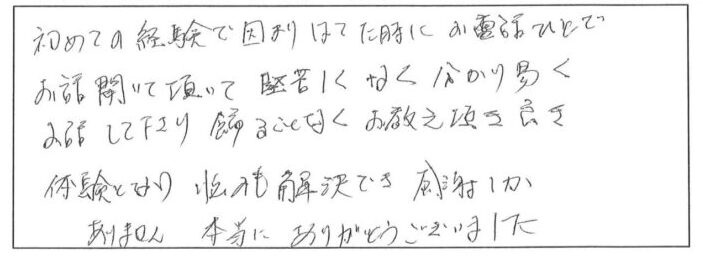 初めての経験で困りはてた時に お電話ひとつで
お話聞いて頂いて 堅苦しくなく 分かり易く
お話して下さり 飾ることなく お教え頂き 良き
体験となり 悩みも解決でき 感謝しか
ありません 本当に ありがとうございました